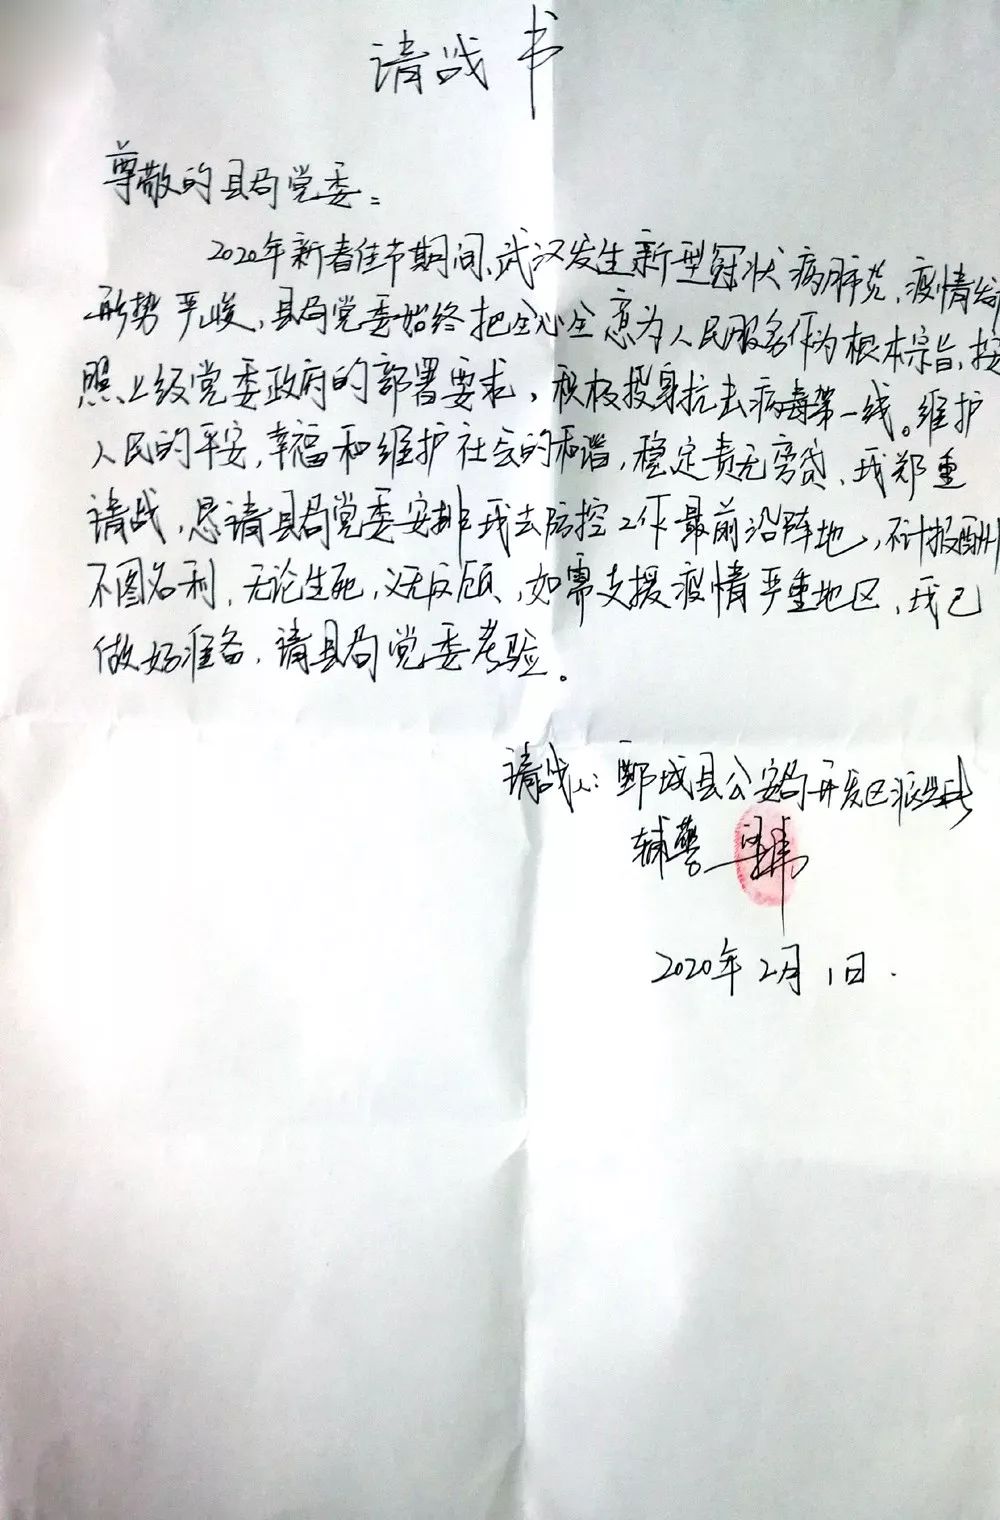 请战书
尊敬的县局党委:
2020年新春佳节期间、武汉发生新型冠状病肺炎、疫情
形势严峻,县局党委始终把全心全意为人民服务作为根本宗旨,按
照上级党委政府的部署要求,积极投身抗击病毒第一线。维护
人民的平安,幸福和维护社会的和谐,稳定责无旁贷、我郑重
请战,恳请县局党委安排我去防控工作最前沿阵地,不计报酬
不图名利,无论生死,义无反顾,如需支援疫情严重地区,我已
做好准备,请县局党委考验。
请战人:鄄城县公安局开发区派出所
辅警
2020年2月1日.